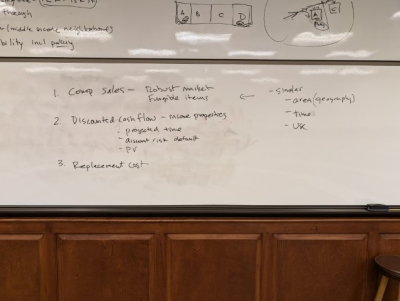 through
(middle income neighborhoods
bility incl. policy
A B C D
1. Comp sales - Robust market
Fungible items
2. Discounted cashflow - income properties
- projected time
- discount risk default
- PV
3. Replacement cost
← - similar
- area (geography)
- time
- use